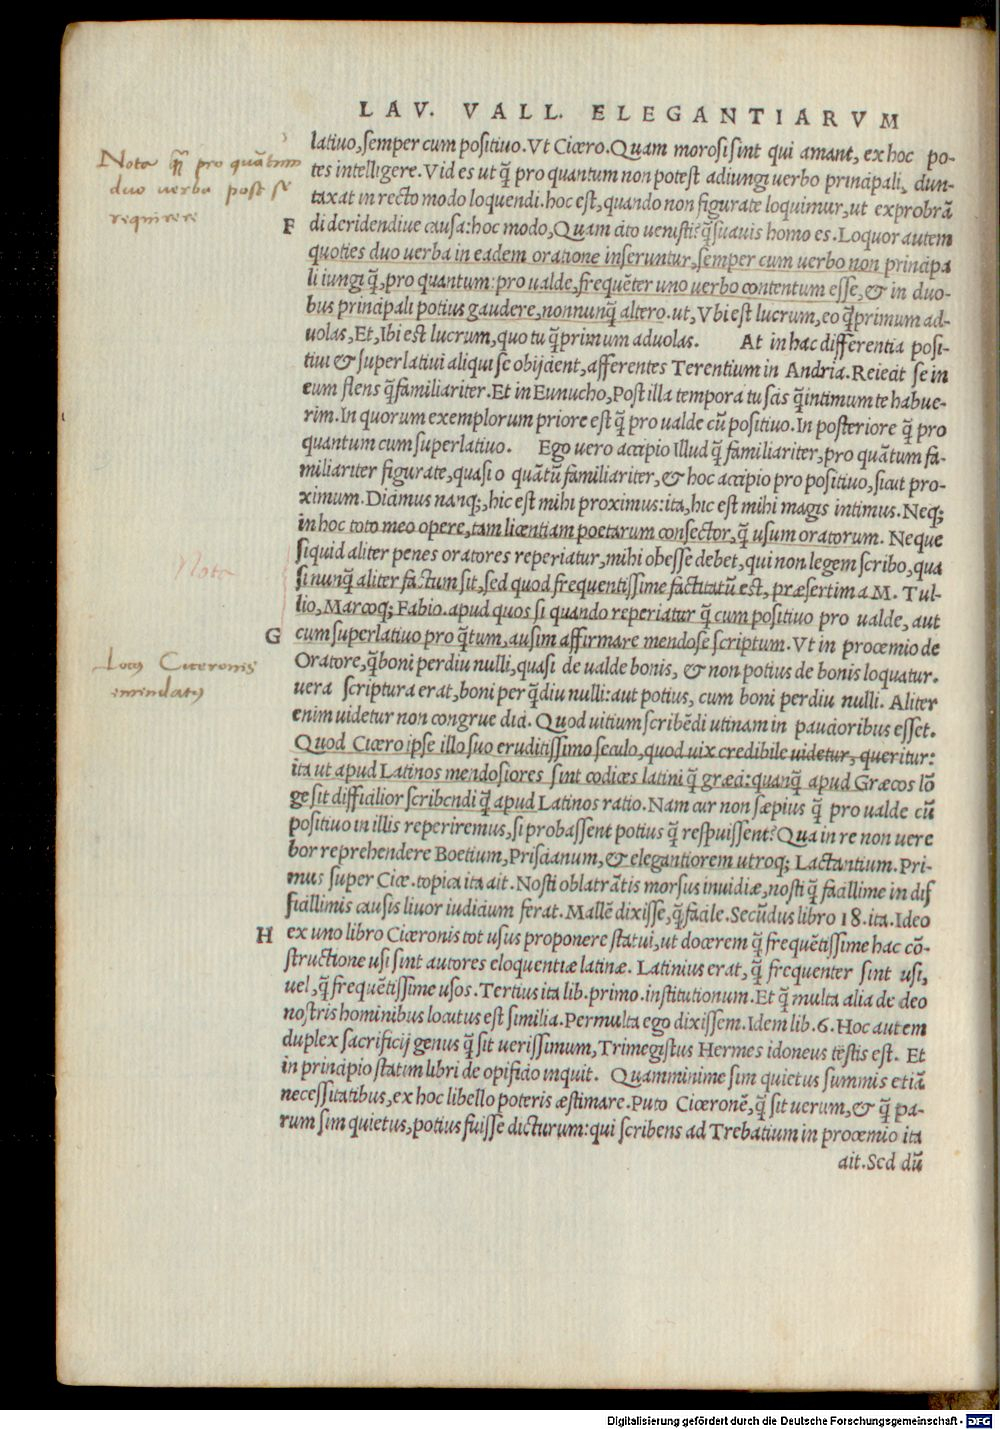 LAV. VALL. ELEGANTIARVM
latiuo, semper cum positiuo. Vt Cicero. Quam morosi sint qui amant, ex hoc po-
tes intelligere. Vides ut q̃ pro quantum non potest adiungi uerbo principali, dun-
taxat in recto modo loquendi. hoc est, quando non figurate loquimur, ut exprobrã
F
di deridendiue causa: hoc modo, Quam cito uenisti? q̃ suauis homo es. Loquor autem
quoties duo uerba in eadem oratione inseruntur, semper cum uerbo non principa
li iungi q̃, pro quantum: pro ualde, frequẽter uno uerbo contentum esse, & in duo-
bus principali potius gaudere, nonnunq̃ altero. ut, Vbi est lucrum, eo q̃primum ad-
uolas, Et, Ibi est lucrum, quo tu q̃primum aduolas. At in hac differentia posi-
tiui & superlatiui aliqui se obijcient, afferentes Terentium in Andria. Reiecit se in
eum flens q̃ familiariter. Et in Eunucho, Post illa tempora tu scis q̃ intimum te habue-
rim. In quorum exemplorum priore est q̃ pro ualde cũ positiuo. In posteriore q̃ pro
quantum cum superlatiuo. Ego uero accipio Illud q̃ familiariter, pro quãtum fa-
miliariter figurate, quasi o quãtũ familiariter, & hoc accipio pro positiuo, sicut pro-
ximum. Dicimus nanq;, hic est mihi proximus: ita, hic est mihi magis intimus. Neq;
in hoc toto meo opere, tam licentiam poetarum consector, q̃ usum oratorum. Neque
siquid aliter penes oratores reperiatur, mihi obesse debet, qui non legem scribo, qua
si nunq̃ aliter factum sit, sed quod frequentissime factitatũ est, præsertim a M. Tul-
lio, Marcoq; Fabio. apud quos si quando reperiatur q̃ cum positiuo pro ualde, aut
G
cum superlatiuo pro q̃tum, ausim affirmare mendose scriptum. Vt in procemio de
Oratore, q̃ boni perdiu nulli, quasi de ualde bonis, & non potius de bonis loquatur.
uera scriptura erat, boni per q̃diu nulli: aut potius, cum boni perdiu nulli. Aliter
enim uidetur non congrue dici. Quod uitium scribẽdi utinam in paucioribus esset.
Quod Cicero ipse illo suo eruditissimo seculo, quod uix credibile uidetur, queritur:
ita ut apud Latinos mendosiores sint codices latini q̃ græci: quanq̃ apud Græcos lõ
ge sit difficilior scribendi q̃ apud Latinos ratio. Nam cur non sæpius q̃ pro ualde cũ
positiuo in illis reperiremus, si probassent potius q̃ respuissent? Qua in re non uere
bor reprehendere Boetium, Priscianum, & elegantiorem utroq; Lactantium. Pri-
mus super Cice. topica ita ait. Nosti oblatrãtis morsus inuidiæ, nosti q̃ facillime in dif
ficillimis causis liuor iudicium ferat. Mallẽ dixisse, q̃ facile. Secũdus libro 18. ita. Ideo
H
ex uno libro Ciceronis tot usus proponere statui, ut docerem q̃ frequẽtissime hac cõ-
structione usi sint autores eloquentiæ latinæ. Latinius erat, q̃ frequenter sint usi,
uel, q̃ frequẽtissime usos. Tertius ita lib. primo. institutionum. Et q̃ multa alia de deo
nostris hominibus locutus est similia. Permulta ego dixissem. Idem lib. 6. Hoc autem
duplex sacrificij genus q̃ sit uerissimum, Trimegistus Hermes idoneus tẽstis est. Et
in principio statim libri de opificio inquit. Quamminime sim quietus summis etiã
necessitatibus, ex hoc libello poteris æstimare. Puto Ciceronẽ, q̃ sit uerum, & q̃ pa-
rum sim quietus, potius fuisse dicturum: qui scribens ad Trebatium in procemio ita
ait. Sed dũ
Nota q̃ pro quãtum
duo uerba post se
requirere
Nota
Locus Ciceronis
emendatus
Digitalisierung gefördert durch die Deutsche Forschungsgemeinschaft - DFG